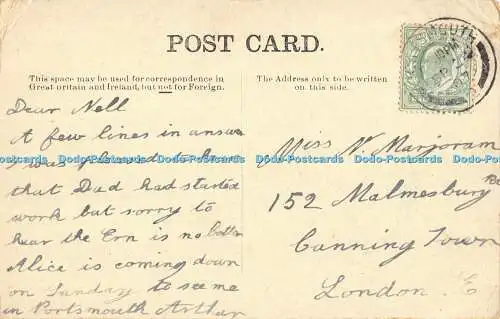 POST CARD.
This space may be used for correspondence in
Great britain and Ireland, but not for Foreign.
The Address only to be written
on this side.
Dear Nell
A few lines in answer
I was pleased to hear
that Dad had started
work but sorry to
hear the Ern is no better
Alice is coming down
on Sunday to see me
in Portsmouth Arthur
Miss N. Marjoram
152 Malmesbury Rd
Canning Town
London. E
Dodo-Postcards Dodo-Postcards Dodo-Postcards Dodo-Postcards Dodo-Postcards